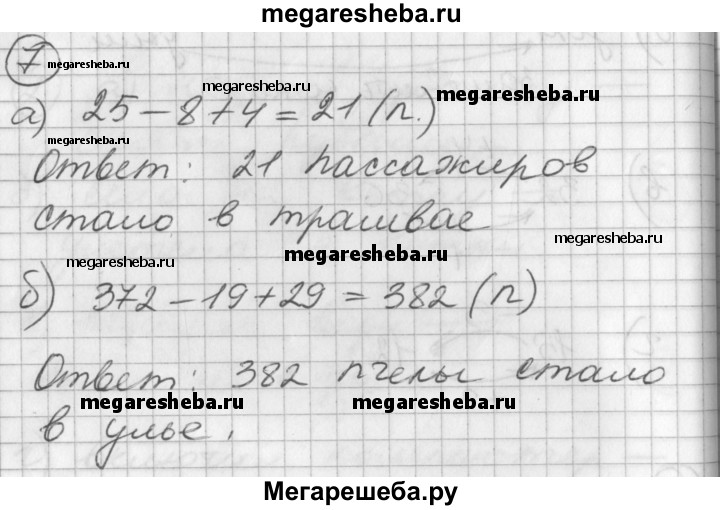 megaresheba.ru
7
megaresheba.ru
megaresheba.ru
megaresheba.ru
а) 25 - 8 + 4 = 21 (п.)
megaresheba.ru
Ответ: 21 пассажиров
стало в трамвае
megaresheba.ru
megaresheba.ru
megaresheba.ru
б) 372 - 19 + 29 = 382 (п)
Ответ: 382 пчелы стало
megaresheba.ru
megaresheba.ru
в улье.
Мегарешеба.ру